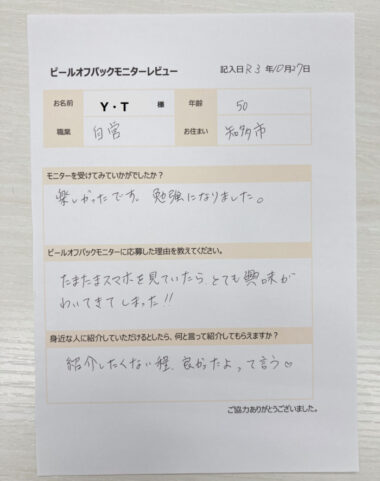 ピールオフパックモニターレビュー 記入日 R3年10月27日
お名前 Y・T 様 年齢 50
職業 自営 お住まい 知多市
モニターを受けてみていかがでしたか?
楽しかったです。勉強になりました。
ピールオフパックモニターに応募した理由を教えてください。
たまたまスマホを見ていたら とても興味が
わいてきてしまった!!
身近な人に紹介していただけるとしたら、何と言って紹介してもらえますか?
紹介したくない程、良かったよって言う♡
ご協力ありがとうございました。